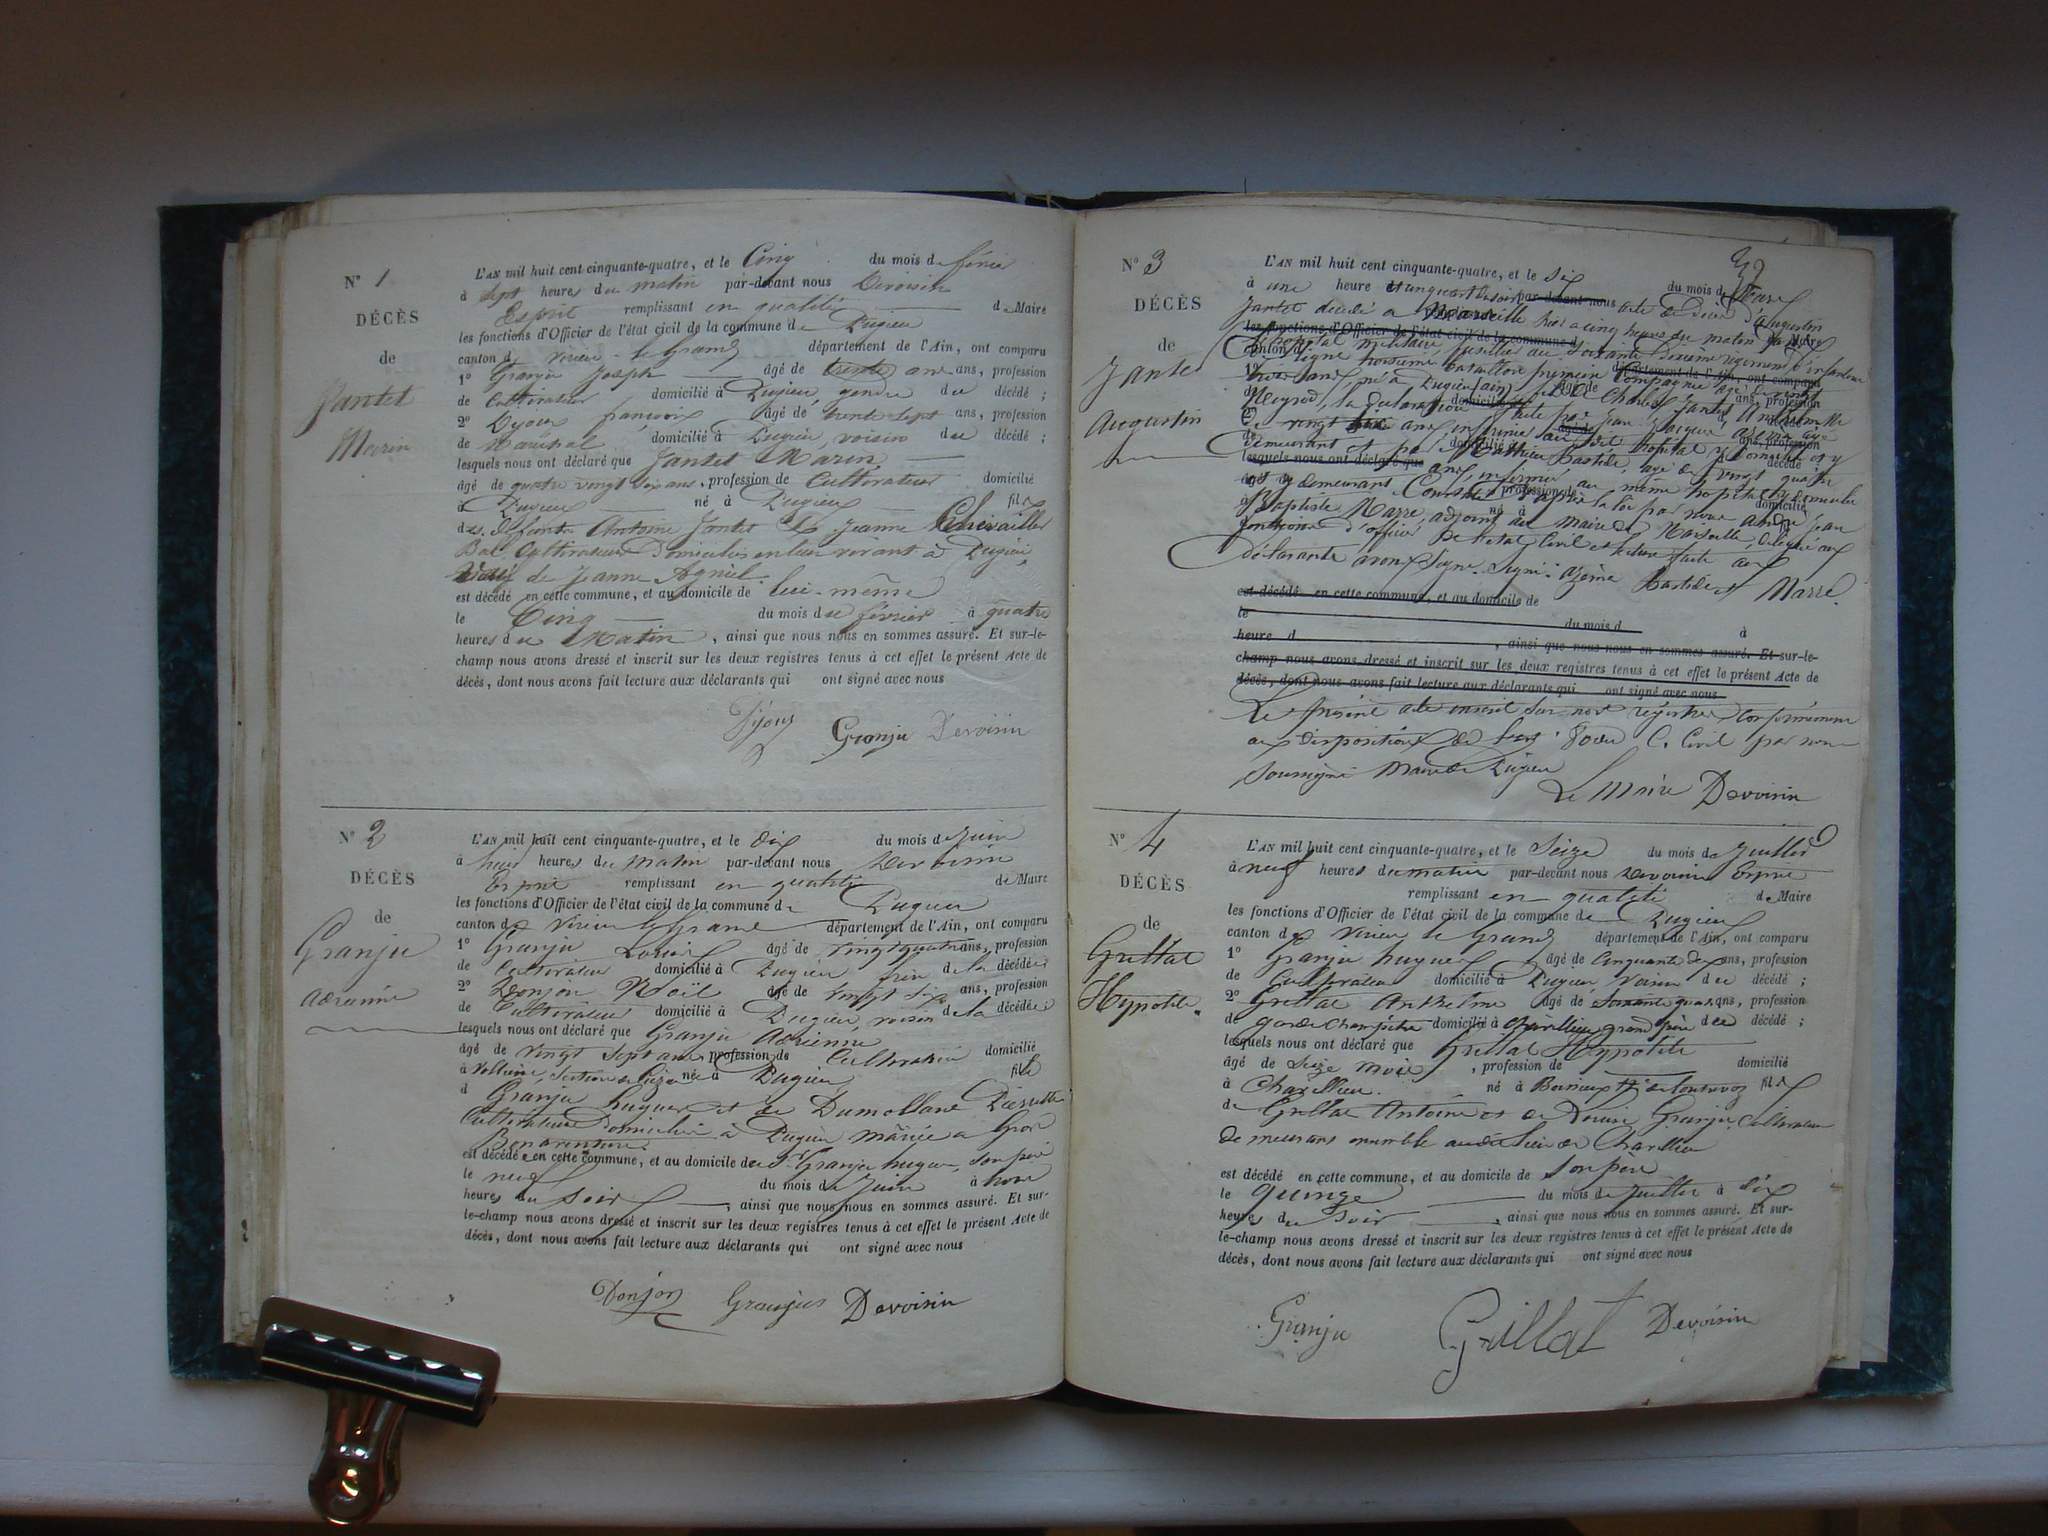 N° 1
DÉCÈS
de
Jantet
Marin
L'AN mil huit cent cinquante-quatre, et le Cinq du mois de février
à sept heures du matin par-devant nous Devoisin
Esprit remplissant en qualité de Maire
les fonctions d'Officier de l'état civil de la commune de Pugieu
canton de Virieu-le-Grand département de l'Ain, ont comparu
1° Granju Joseph âgé de trente ans, profession
de Cultivateur domicilié à Pugieu, gendre du décédé ;
2° Dijoux françois âgé de trente sept ans, profession
de Maréchal domicilié à Pugieu, voisin du décédé ;
lesquels nous ont déclaré que Jantet Marin
âgé de quatre vingt dix ans, profession de Cultivateur domicilié
à Pugieu né à Pugieu fils
des défunts Antoine Jantet et Jeanne Chevailler
Bal Cultivateurs domiciliés en leur vivant à Pugieu,
veuf de Jeanne Agniel.
est décédé en cette commune, et au domicile de lui-même
le Cinq du mois de février à quatre
heures du Matin, ainsi que nous nous en sommes assuré. Et sur-le-
champ nous avons dressé et inscrit sur les deux registres tenus à cet effet le présent Acte de
décès, dont nous avons fait lecture aux déclarants qui ont signé avec nous
Dijoux Granju Devoisin
N° 2
DÉCÈS
de
Granju
adrienne
L'AN mil huit cent cinquante-quatre, et le dix du mois de Juin
à huit heures du Matin par-devant nous Devoisin
Esprit remplissant en qualité de Maire
les fonctions d'Officier de l'état civil de la commune de Pugieu
canton de Virieu le Grand département de l'Ain, ont comparu
1° Granju Louis âgé de vingt quatre ans, profession
de Cultivateur domicilié à Pugieu frère de la décédée
2° Donjon Noël âgé de vingt six ans, profession
de Cultivateur domicilié à Pugieu, voisin de la décédée ;
lesquels nous ont déclaré que Granju Adrienne
âgé de vingt sept ans, profession de domicilié
à née à Pugieu fille
d Granju huguer et de Dumollard Pierrette
Cultivateurs domiciliés à Pugieu mariée a
est décédée en cette commune, et au domicile de Sr Granju huguer, son père
le neuf du mois de Juin à
heures du Soir, ainsi que nous nous en sommes assuré. Et sur-
le-champ nous avons dressé et inscrit sur les deux registres tenus à cet effet le présent Acte de
décès, dont nous avons fait lecture aux déclarants qui ont signé avec nous
Donjon Granju Devoisin
N° 3
DÉCÈS
de
Jantet
Augustin
L'AN mil huit cent cinquante-quatre, et le Six du mois de
à une heure et un quart du soir par-devant nous acte de décès d'augustin
Jantet décédé à Marseille hier a cinq heures du matin
les fonctions d'Officier de l'état civil de la commune d
à l'hôpital militaire, fusilier au Soixante dixième régiment d'infanterie
de ligne troisième bataillon première Compagnie âgé de vingt
trois ans, né à Pugieu (ain) fils de Charles Jantet et
Meyrod, la déclaration faite par Jean Jacques azéma âgé
de vingt ans, infirmier au dit hôpital y
demeurant et par Mathieu Bastide, âgé de vingt quatre
ans, infirmier au même hopital y demeurant
Constaté d'après la loi par nous André Jean
Baptiste Marre, adjoint du maire de Marseille, délégué aux
fonctions d'officier de l'état Civil et lecture faite aux
déclarants avons signé. Signé: azéma Bastide et Marre.
est décédé en cette commune, et au domicile de
le du mois d à
heure d, ainsi que nous nous en sommes assuré. Et sur-le-
champ nous avons dressé et inscrit sur les deux registres tenus à cet effet le présent Acte de
décès, dont nous avons fait lecture aux déclarants qui ont signé avec nous
Le présent acte inscrit sur nos registres conformément
aux dispositions de l'art. 80 du C. Civil par nous
soussigné Maire de Pugieu
Le Maire Devoisin
N° 4
DÉCÈS
de
Grillat
Hypolite.
L'AN mil huit cent cinquante-quatre, et le Seize du mois de Juillet
à neuf heures du matin par-devant nous Devoisin Esprit
remplissant en qualité de Maire
les fonctions d'Officier de l'état civil de la commune de Pugieu
canton de Virieu le Grand département de l'Ain, ont comparu
1° Granju huguer âgé de Cinquante six ans, profession
de Cultivateur domicilié à Pugieu Voisin du décédé ;
2° Grillat Anthelme âgé de Soixante quatre ans, profession
de garde champêtre domicilié à Chazillieu grand père du décédé ;
lesquels nous ont déclaré que Grillat Hypolite
âgé de Seize mois, profession de domicilié
à Chazillieu. né à fils
de Grillat Antoine et de Louise Granju Cultivateurs
demeurant ensemble au dit lieu de Chazillieu
est décédé en cette commune, et au domicile de son père
le quinze du mois de Juillet à dix
heures du Soir, ainsi que nous nous en sommes assuré. Et sur-
le-champ nous avons dressé et inscrit sur les deux registres tenus à cet effet le présent Acte de
décès, dont nous avons fait lecture aux déclarants qui ont signé avec nous
Granju Grillat Devoisin